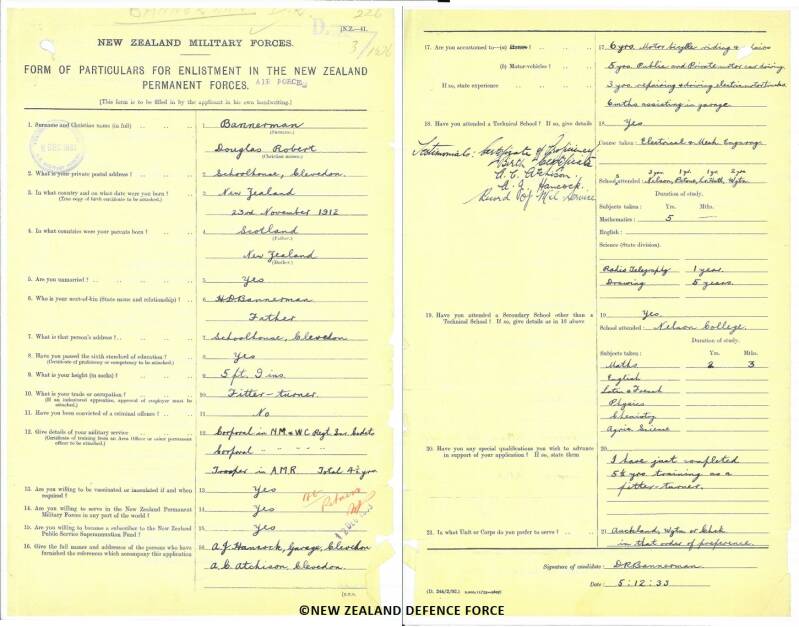 BANNERMAN D.R. 226
[N.Z.—41.
D.
3/
NEW ZEALAND MILITARY FORCES.
FORM OF PARTICULARS FOR ENLISTMENT IN THE NEW ZEALAND
PERMANENT FORCES. AIR FORCE
[This form is to be filled in by the applicant in his own handwriting.]
1. Surname and Christian name (in full) 1 Bannerman
(Surname.)
Douglas Robert
(Christian names.)
2. What is your private postal address? 2 Schoolhouse, Clevedon.
3. In what country and on what date were you born? 3 New Zealand
(True copy of birth certificate to be attached.)
23rd November 1912
4. In what countries were your parents born? 4 Scotland
(Father.)
New Zealand
(Mother.)
5. Are you unmarried? 5 Yes
6. Who is your next-of-kin (State name and relationship)? 6 H.D.Bannerman
Father
7. What is that person's address? 7 Schoolhouse, Clevedon
8. Have you passed the sixth standard of education? 8 Yes
(Certificate of proficiency or competency to be attached.)
9. What is your height (in socks)? 9 5 ft. 9 ins.
10. What is your trade or occupation? 10 Fitter-turner.
(If an indentured apprentice, approval of employer must be attached.)
11. Have you been convicted of a criminal offence? 11 No
12. Give details of your military service 12 Corporal in N.M. & W.C. Regt Snr. Cadets
(Certificate of training from an Area Officer or other permanent officer to be attached.)
Corporal " " " "
Trooper in A.M.R. Total 4½ yrs
13. Are you willing to be vaccinated or inoculated if and when 13 Yes
required?
14. Are you willing to serve in the New Zealand Permanent 14 Yes
Military Forces in any part of the world?
15. Are you willing to become a subscriber to the New Zealand 15 Yes
Public Service Superannuation Fund?
16. Give the full names and addresses of the persons who have 16 A.J. Hancock, Garage, Clevedon
furnished the references which accompany this application
A.C. Atchison, Clevedon.
17. Are you accustomed to—(a) Horses? 17 6 yrs. Motor bicycle riding &
(b) Motor-vehicles? 5 yrs. Public and Private motor car driving.
If so, state experience 3 yrs repairing & driving electric motor trucks
6 mths assisting in garage.
18. Have you attended a Technical School? If so, give details 18 Yes
Testimonials: Certificate of Proficiency
Birth Certificate
A.C. Atchison
A.J. Hancock.
Record of Mil Service
Course taken: Electrical & Mech Engrng.
3 yrs. 1 yr. 1 yr. 2 yrs
Schools attended: Nelson, Petone, Wgtn
Duration of study.
Subjects taken: Yrs. Mths.
Mathematics: 5 —
English:
Science (State division).
Radio Telegraphy 1 year.
Drawing 5 years.
19. Have you attended a Secondary School other than a 19 Yes.
Technical School? If so, give details as in 18 above
School attended: Nelson College.
Duration of study.
Subjects taken: Yrs. Mths.
Maths 2 3
English
Latin & French
Physics
Chemistry
Agric Science
20. Have you any special qualifications you wish to advance 20
in support of your application? If so, state them
I have just completed
5½ yrs. training as a
fitter-turner.
21. In what Unit or Corps do you prefer to serve? 21 Auckland, Wgtn or Chch
in that order of preference.
Signature of candidate: D.R.Bannerman.
Date: 5:12:33
©NEW ZEALAND DEFENCE FORCE